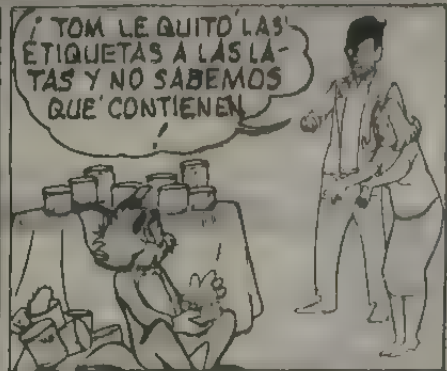 ¡TOM LE QUITÓ LAS
ETIQUETAS A LAS LA-
TAS Y NO SABEMOS
QUE CONTIENEN
!